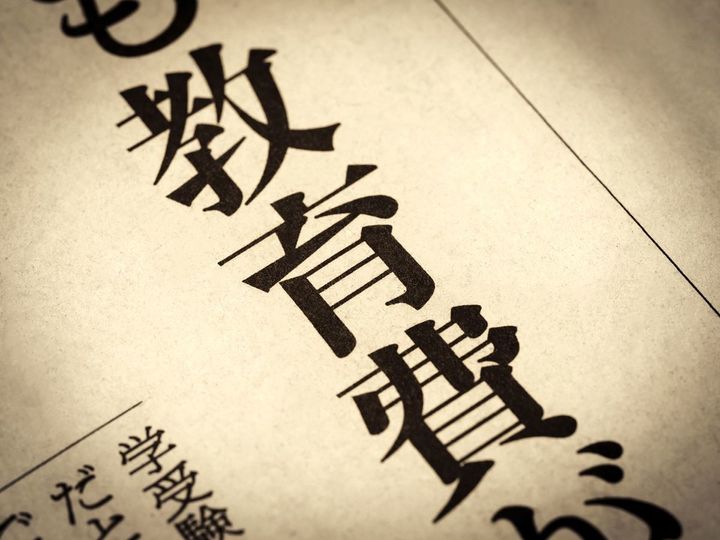 も教育費が
学受験
だと
で